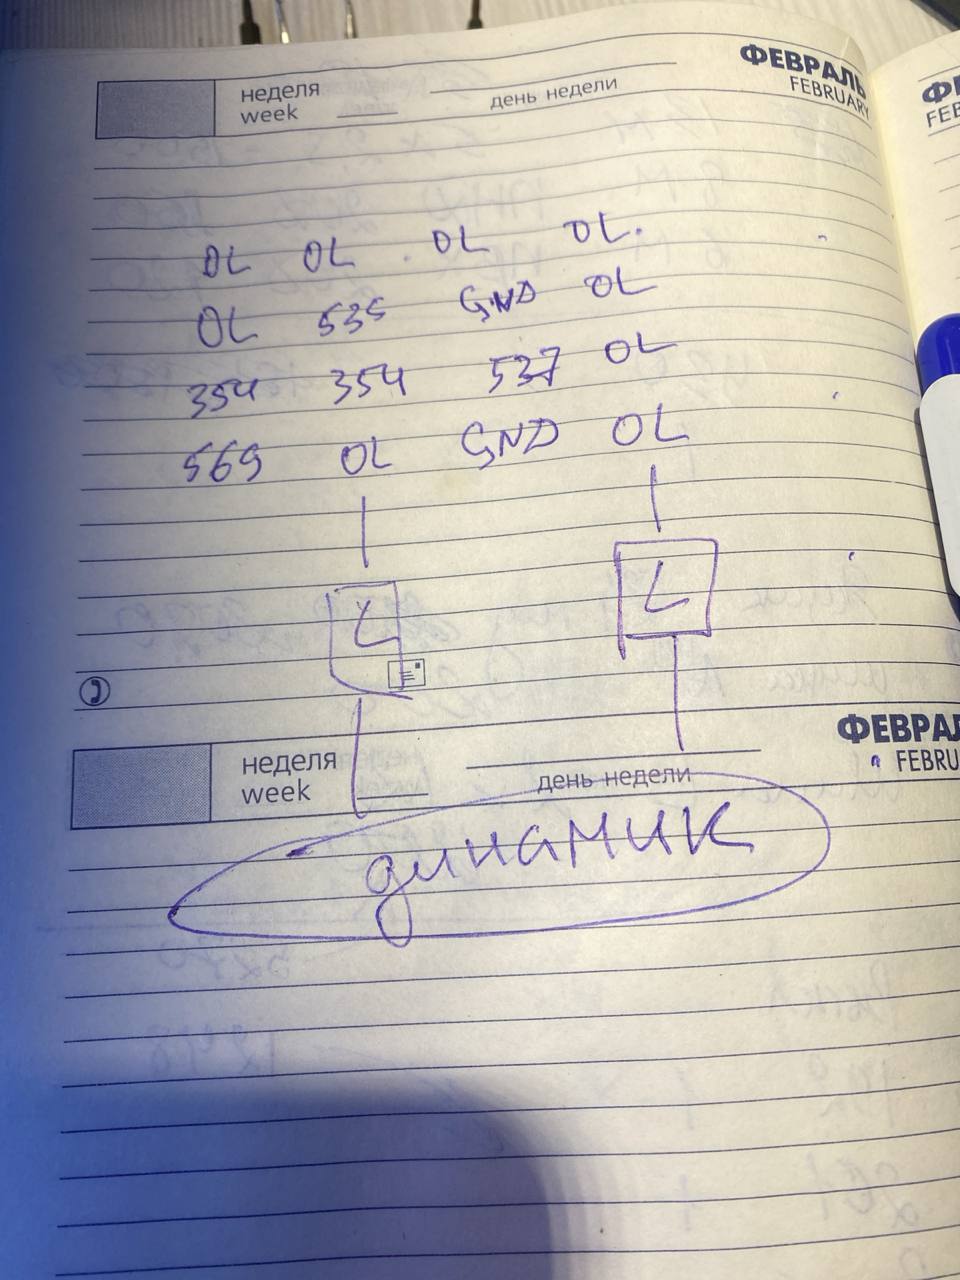 ФЕВРАЛЬ
FEBRUARY
неделя
week
день недели
OL OL OL OL
OL 535 GND OL
354 354 537 OL
569 OL GND OL
L L
ФЕВРАЛ
FEBRU
неделя
week
день недели
динамик